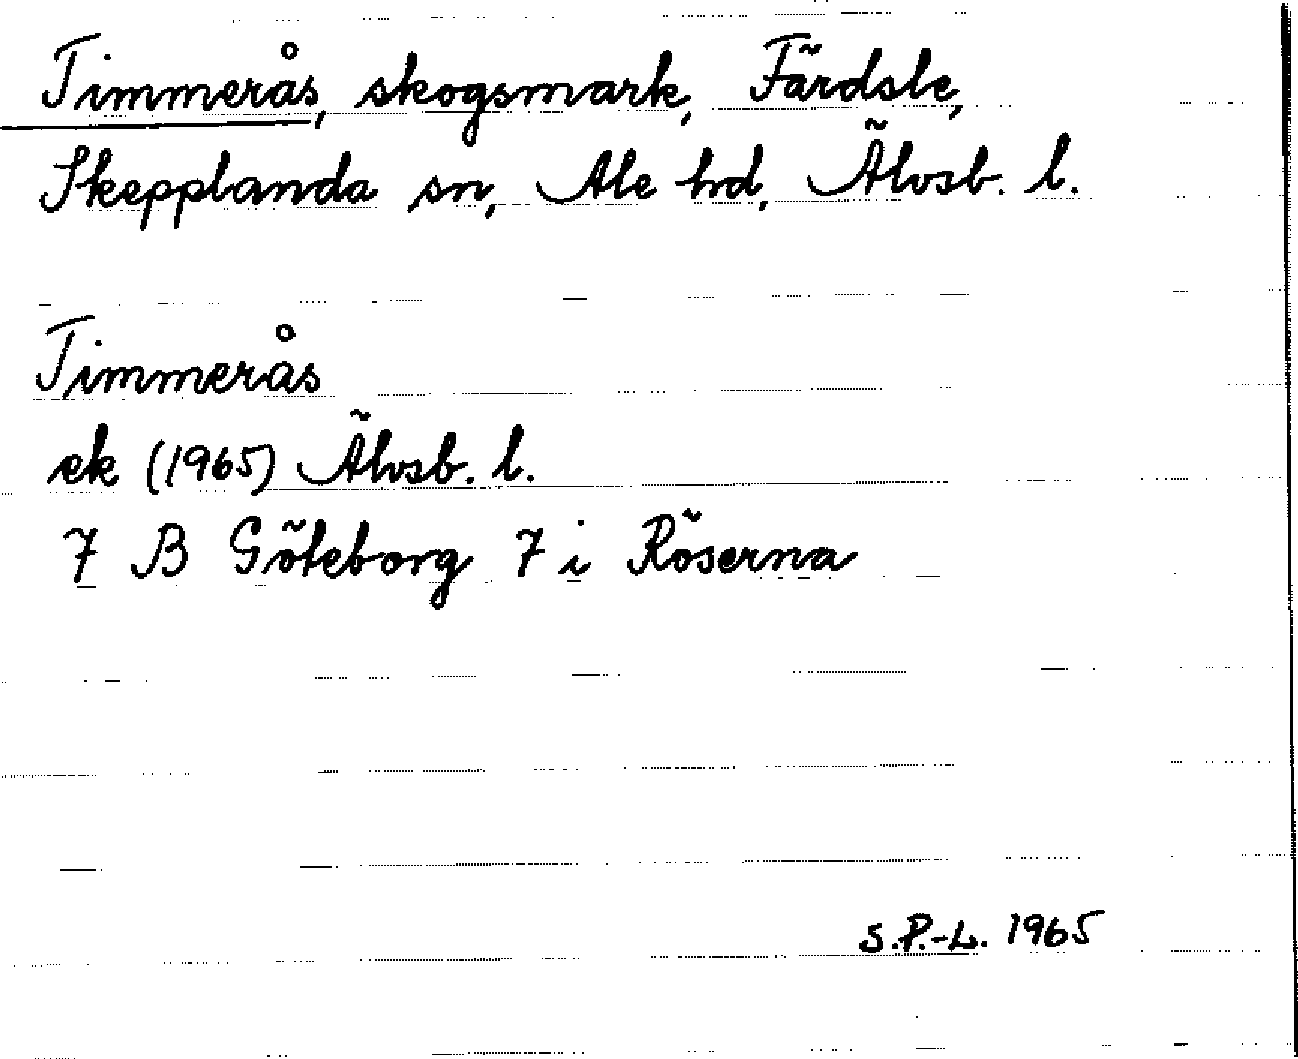 Timmerås, skogsmark, Färdsle,
Skepplanda sn, Ale hd, Älvsb. l.
Timmerås
ek (1965) Älvsb. l.
7 B Göteborg 7 i Röserna
S.P.-L. 1965